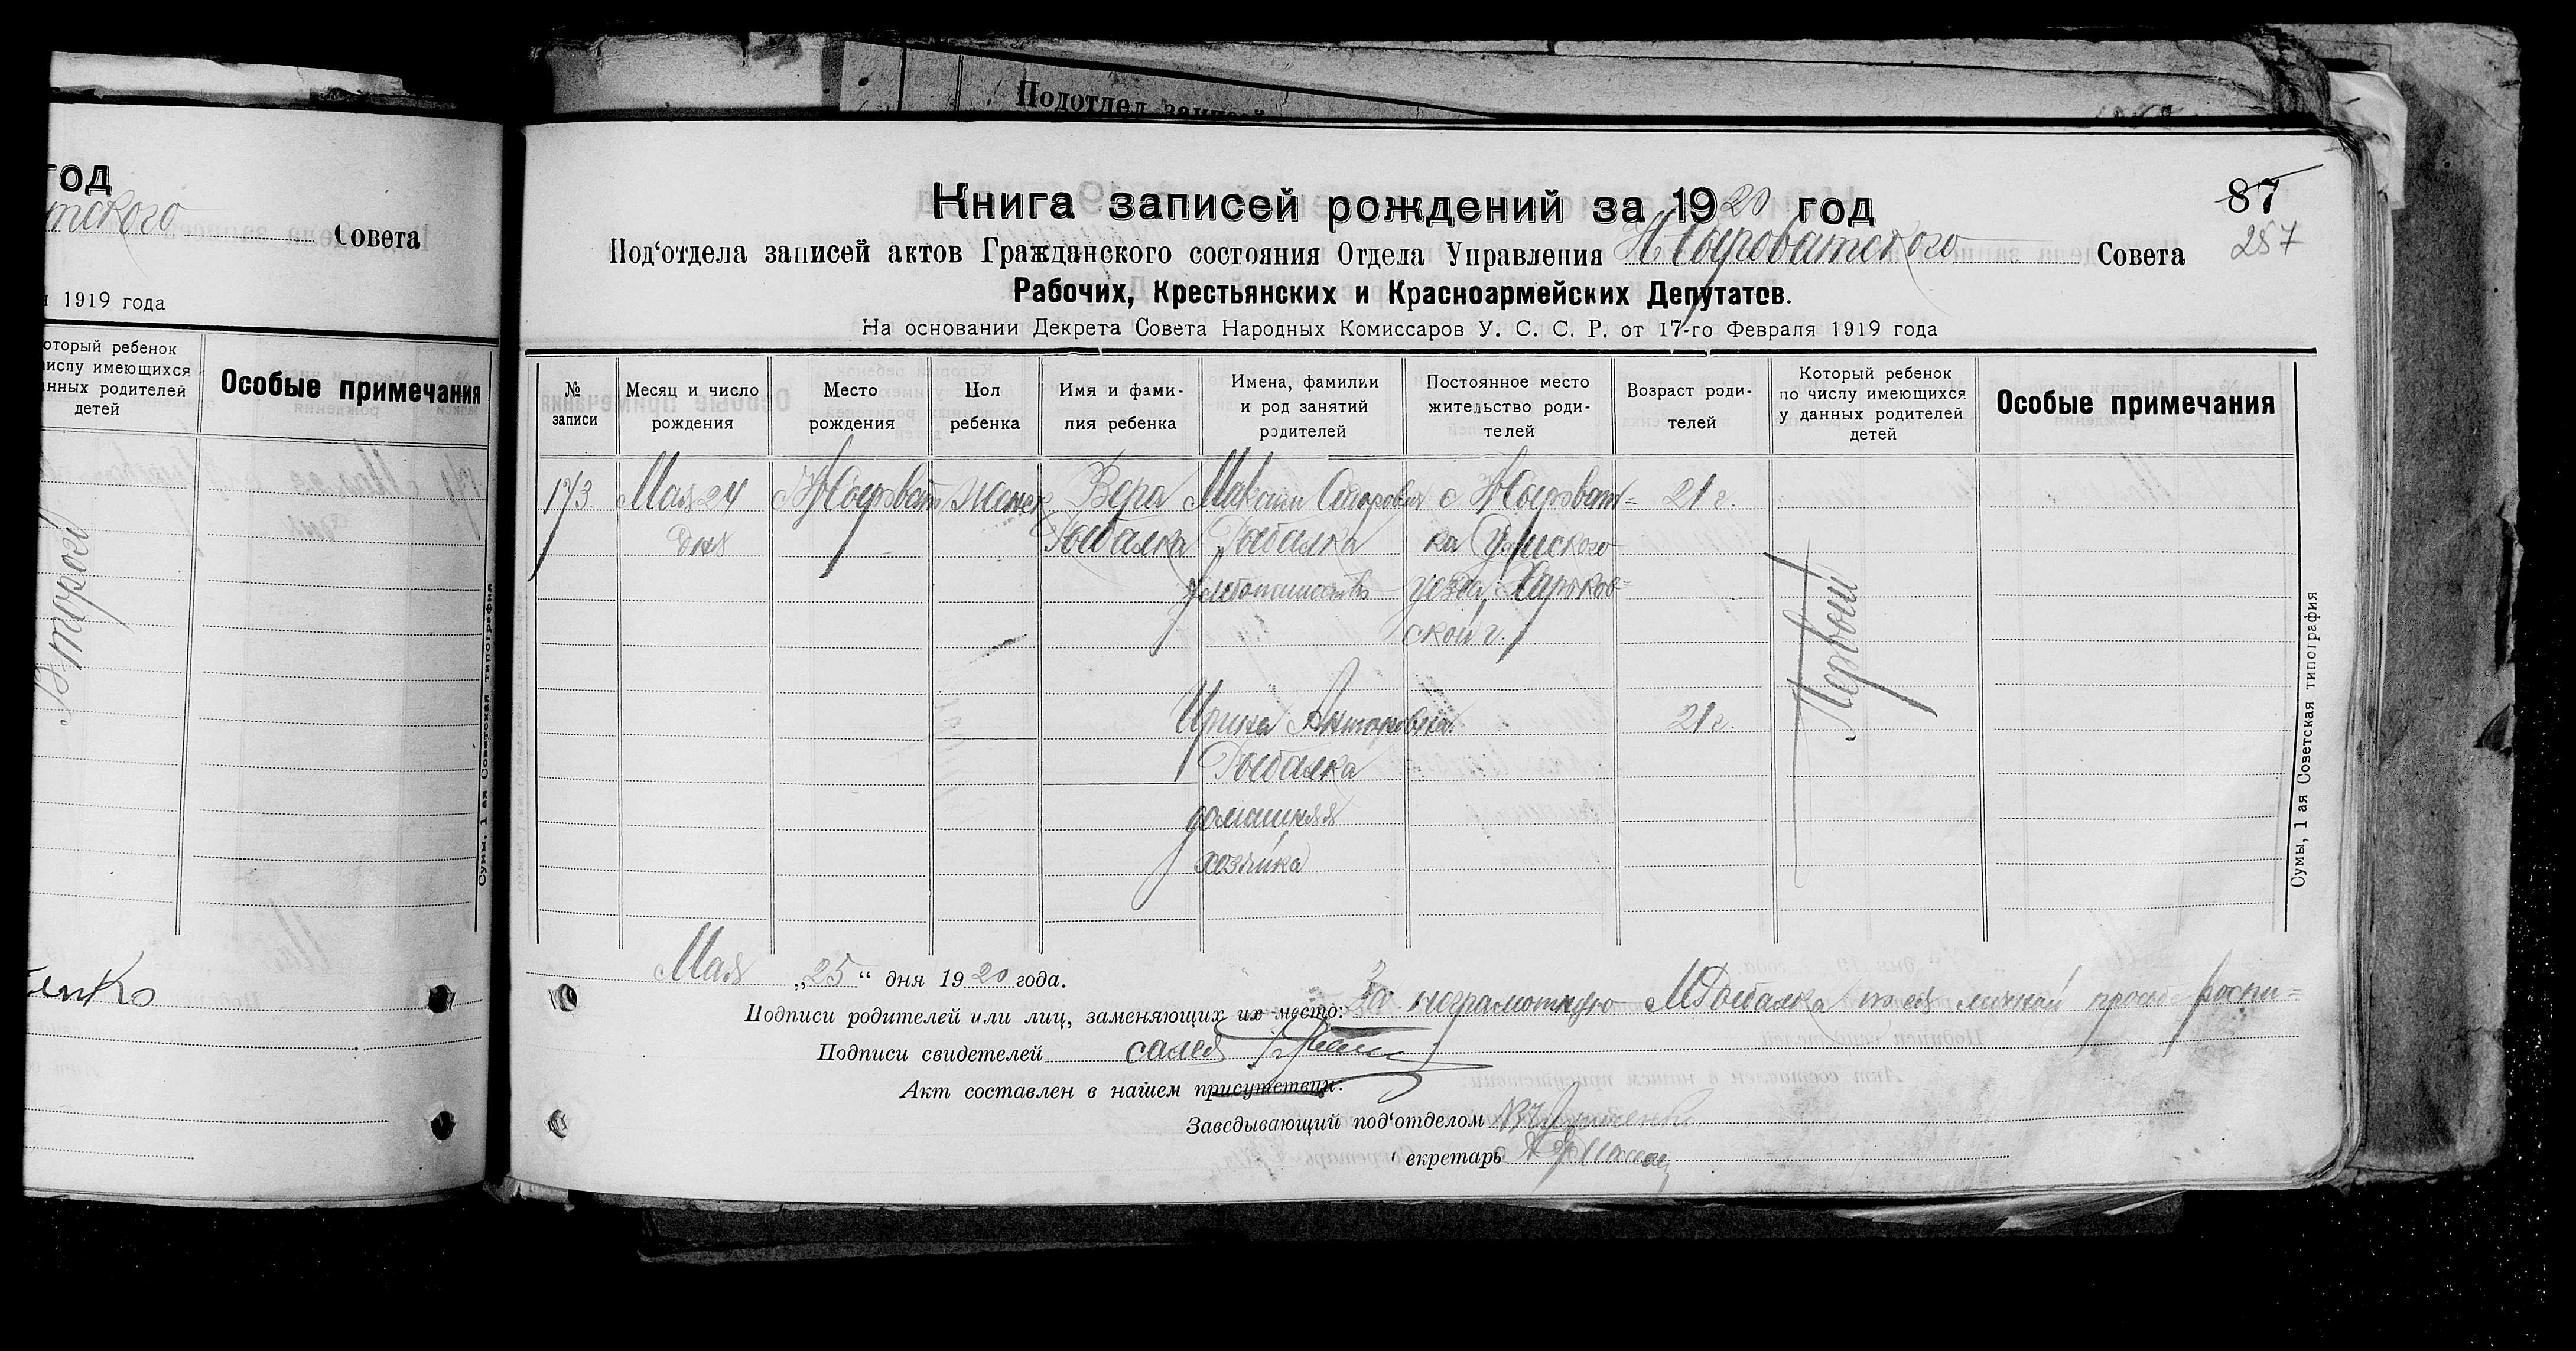 Подотдел записей
год
тского Совета
я 1919 года
который ребенок
числу имеющихся
данных родителей
детей
Особые примечания
Второй
енко
Сумы, 1 ая Советская типография
87
257
Книга записей рождений за 1920 год
Под‘отдела записей актов Гражданского состояния Отдела Управления Н Сыроватского Совета
Рабочих, Крестьянских и Красноармейских Депутатов.
На основании Декрета Совета Народных Комиссаров У. С. С. Р. от 17-го Февраля 1919 года
№ записи
Месяц и число рождения
Место рождения
Пол ребенка
Имя и фами-
лия ребенка
Имена, фамилии
и род занятий
родителей
Постоянное место
жительство роди-
телей
Возраст роди-
телей
Который ребенок
по числу имеющихся
у данных родителей
детей
Особые примечания
173 Мая 24 Н Сыроват Женск Вера Максим с Н Сыроват- 21 г.
дня Рыбалка Рыбалка ка Сумского
Хлебопашество уезда, Харьков-
ской г.
Первый
Ирина Антоновна 21 г.
Рыбалка
домашняя
хозяйка
Мая „25“ дня 1920 года.
Подписи родителей или лиц, заменяющих их место: За неграмотную М Рыбалка по ея личной прось роспи-
Подписи свидетелей сался
Акт составлен в нашем присутствии.
Заведывающий под‘отделом
Секретарь
Сумы, 1 ая Советская типография